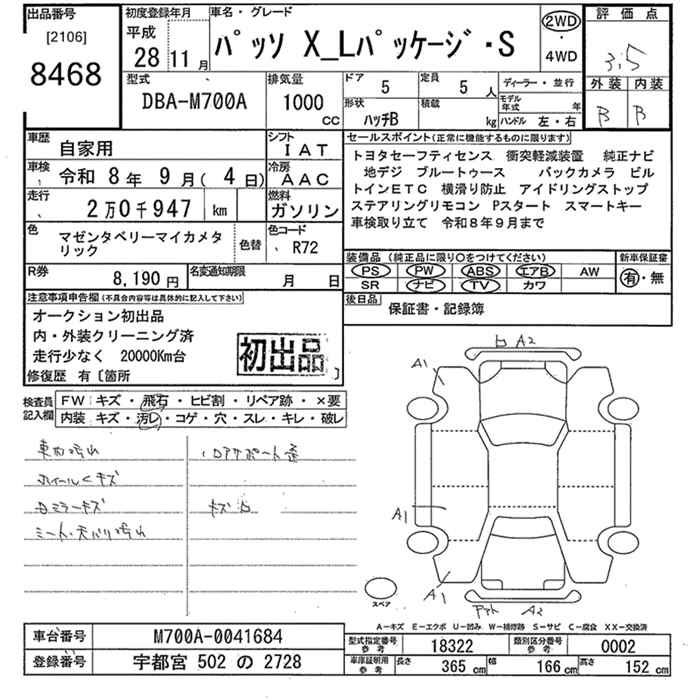 出品番号
[2106]
8468
初度登録年月
平成
28年11月
車名・グレード
パッソ X_Lパッケージ・S
2WD
・
4WD
評価点
3.5
外装 内装
B B
型式
DBA-M700A
排気量
1000
CC
ドア
5
定員
5人
形状
ハッチB
積載
kg
ディーラー・並行
モデル年式 年
ハンドル 左・右
車歴
自家用
シフト
IAT
車検
令和 8年 9月( 4日)
冷房
AAC
走行
2万0千947 km
燃料
ガソリン
色
マゼンタベリーマイカメタリック
色替
色コード
R72
R券
8,190円
名変通知期限
月 日
セールスポイント(正常に機能するものに限ります)
トヨタセーフティセンス 衝突軽減装置 純正ナビ
地デジ ブルートゥース バックカメラ ビル
トインETC 横滑り防止 アイドリングストップ
ステアリングリモコン Pスタート スマートキー
車検取り立て 令和8年9月まで
装備品(純正品に限り○をつけてください)
PS PW ABS エアB AW
SR ナビ TV カワ
新車保証書
有・無
後日品
保証書・記録簿
注意事項申告欄(不具合内容等は具体的に記入して下さい)
オークション初出品
内・外装クリーニング済
走行少なく 20000Km台
修復歴 有〔箇所
初出品
検査員記入欄
FW キズ・飛石・ヒビ割・リペア跡・×要
内装 キズ・汚レ・コゲ・穴・スレ・キレ・破レ
車内汚れ
ホイールキズ
ミラーキズ
シート・天バリ汚れ
キズ
A2
A1
A1
A1
A2
スペア
A−キズ E−エクボ U−凹み W−補修跡 S−サビ C−腐食 XX−交換済
車台番号
M700A-0041684
登録番号
宇都宮 502 の 2728
型式指定番号
参考
18322
類別区分番号
参考
0002
車庫証明用
参考
長さ
365 cm
幅
166 cm
高さ
152 cm